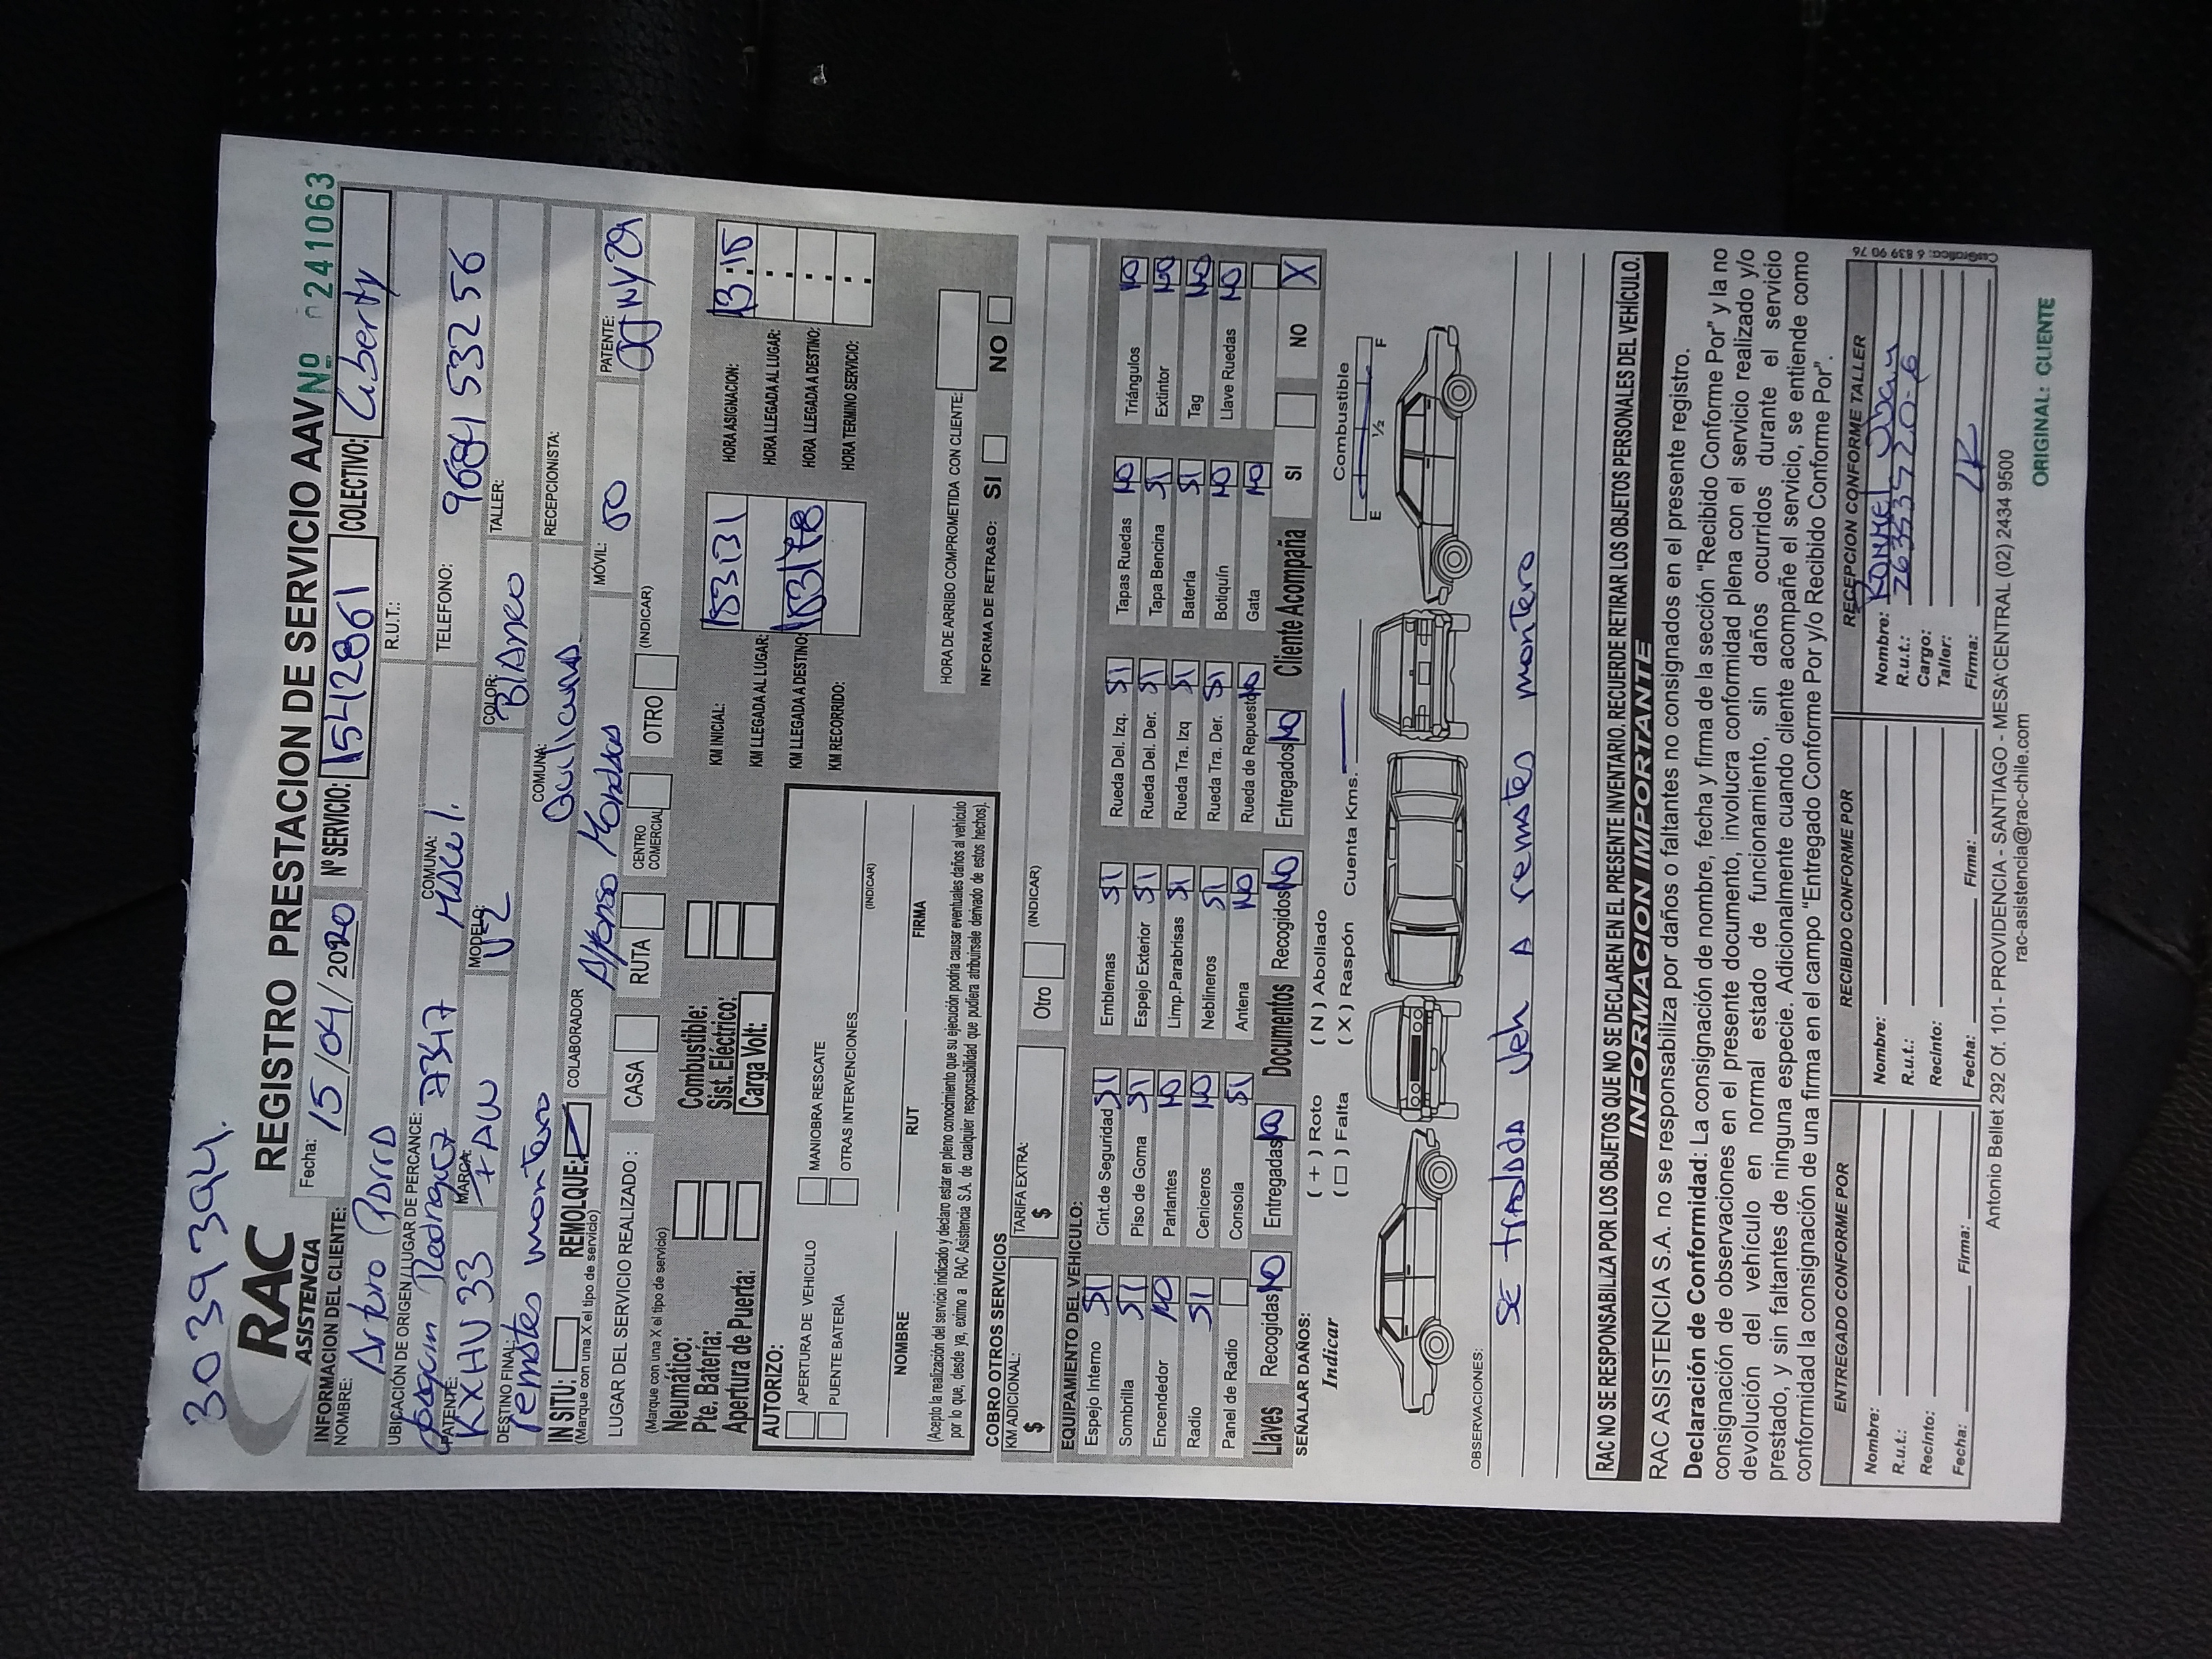 3039394.
RAC
ASISTENCIA
REGISTRO PRESTACION DE SERVICIO AAV Nº 241063
Fecha: 15/04/2020 Nº SERVICIO: 1542861 COLECTIVO: Liberty
INFORMACION DEL CLIENTE:
NOMBRE: Arturo Parra R.U.T.:
UBICACIÓN DE ORIGEN / LUGAR DE PERCANCE: COMUNA: TELEFONO: 968453256
7347 Macul.
PATENTE: KXHV33 MARCA: FAW MODELO: V2 COLOR: Blanco TALLER:
DESTINO FINAL: remates montero COMUNA: Quilicura RECEPCIONISTA:
IN SITU: REMOLQUE: COLABORADOR Alfonso MÓVIL: 50 PATENTE:
(Marque con una X el tipo de servicio)
LUGAR DEL SERVICIO REALIZADO: CASA RUTA CENTRO COMERCIAL OTRO (INDICAR)
(Marque con una X el tipo de servicio)
Neumático: Combustible:
Pte. Batería: Sist. Eléctrico:
Apertura de Puerta: Carga Volt:
KM INICIAL: 183131 HORA ASIGNACION: 13:15
KM LLEGADA AL LUGAR: HORA LLEGADA AL LUGAR:
KM LLEGADA A DESTINO: 183178 HORA LLEGADA A DESTINO:
KM RECORRIDO: HORA TERMINO SERVICIO:
AUTORIZO:
APERTURA DE VEHICULO MANIOBRA RESCATE
PUENTE BATERÍA OTRAS INTERVENCIONES (INDICAR)
NOMBRE RUT FIRMA
(Acepto la realización del servicio indicado y declaro estar en pleno conocimiento que su ejecución podría causar eventuales daños al vehículo
por lo que, desde ya, eximo a RAC Asistencia S.A. de cualquier responsabilidad que pudiera atribuírsele derivado de estos hechos).
HORA DE ARRIBO COMPROMETIDA CON CLIENTE:
INFORMA DE RETRASO: SI NO
COBRO OTROS SERVICIOS
KM ADICIONAL: $ TARIFA EXTRA: $ Otro (INDICAR)
EQUIPAMIENTO DEL VEHICULO:
Espejo Interno SI Cint.de Seguridad SI Emblemas SI Rueda Del. Izq. SI Tapas Ruedas NO Triángulos NO
Sombrilla SI Piso de Goma SI Espejo Exterior SI Rueda Del. Der. SI Tapa Bencina SI Extintor NO
Encendedor NO Parlantes NO Limp.Parabrisas SI Rueda Tra. Izq SI Batería SI Tag NO
Radio SI Ceniceros NO Neblineros SI Rueda Tra. Der. SI Botiquín NO Llave Ruedas NO
Panel de Radio Consola SI Antena NO Rueda de Repuesto NO Gata NO
Llaves Recogidas NO Entregadas NO Documentos Recogidos NO Entregados NO Cliente Acompaña SI NO X
SEÑALAR DAÑOS:
Indicar ( + ) Roto ( N ) Abollado
( □ ) Falta ( X ) Raspón Cuenta Kms.
Combustible
E 1/2 F
OBSERVACIONES:
SE traslada veh A remates montero
RAC NO SE RESPONSABILIZA POR LOS OBJETOS QUE NO SE DECLAREN EN EL PRESENTE INVENTARIO. RECUERDE RETIRAR LOS OBJETOS PERSONALES DEL VEHÍCULO.
INFORMACION IMPORTANTE
RAC ASISTENCIA S.A. no se responsabiliza por daños o faltantes no consignados en el presente registro.
Declaración de Conformidad: La consignación de nombre, fecha y firma de la sección "Recibido Conforme Por" y la no
consignación de observaciones en el presente documento, involucra conformidad plena con el servicio realizado y/o
devolución del vehículo en normal estado de funcionamiento, sin daños ocurridos durante el servicio
prestado, y sin faltantes de ninguna especie. Adicionalmente cuando cliente acompañe el servicio, se entiende como
conformidad la consignación de una firma en el campo "Entregado Conforme Por y/o Recibido Conforme Por".
ENTREGADO CONFORME POR RECIBIDO CONFORME POR RECEPCION CONFORME TALLER
Nombre: Nombre: Nombre:
R.u.t.: R.u.t.: R.u.t.:
Recinto: Recinto: Cargo:
Taller:
Fecha: Firma: Fecha: Firma: Firma:
CasGrafica: 6 839 90 76
Antonio Bellet 292 Of. 101- PROVIDENCIA - SANTIAGO - MESA CENTRAL (02) 2434 9500
rac-asistencia@rac-chile.com
ORIGINAL: CLIENTE